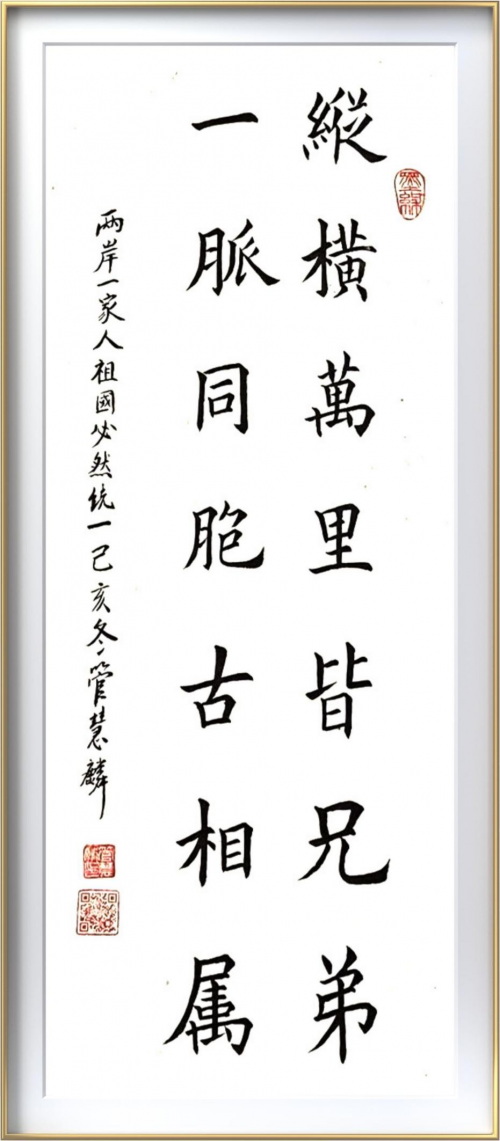 縱橫萬里皆兄弟
一脈同胞古相属
兩岸一家人祖國必然统一己亥冬管慧麟